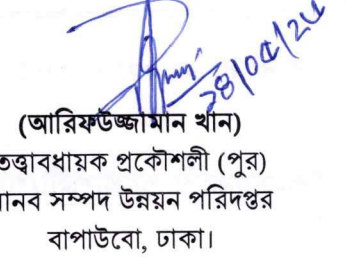 ২৪/০৫/২৫
(আরিফউজ্জামান খান)
তত্ত্বাবধায়ক প্রকৌশলী (পুর)
মানব সম্পদ উন্নয়ন পরিদপ্তর
বাপাউবো, ঢাকা।